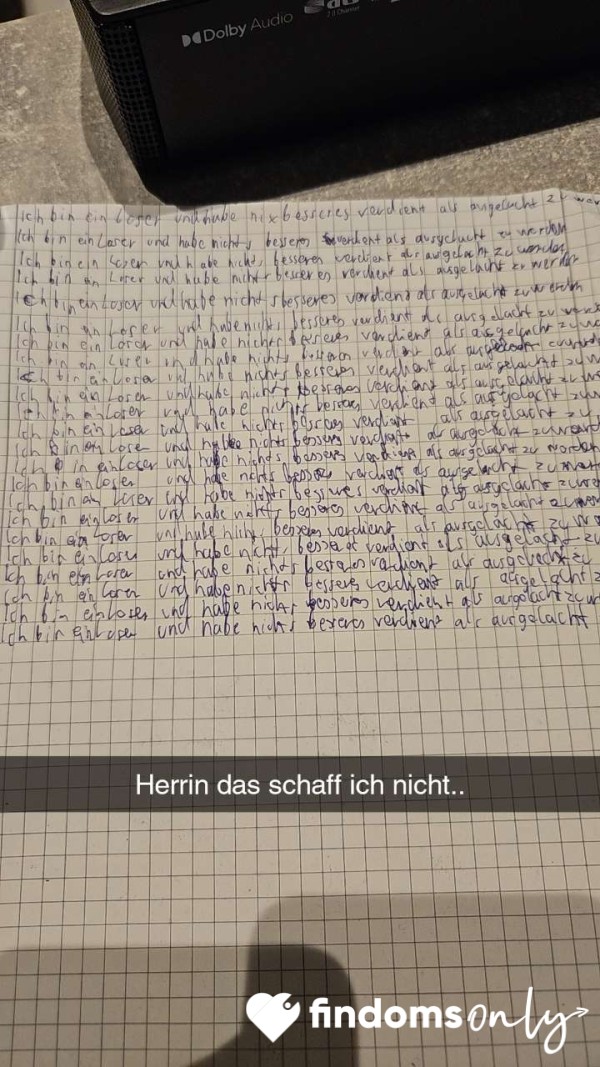 Dolby Audio
Ich bin ein Loser und habe nix besseres verdient als ausgelacht zu
Ich bin ein Loser und habe nichts besseres verdient als ausgelacht zu werden
Ich bin ein Loser und habe nichts besseren verdient als ausgelacht zu werden
Ich bin ein Loser und habe nichts besseres verdient als ausgelacht zu werden
Ich bin ein Loser und habe nichts besseres verdient als ausgelacht zu werden
Ich bin ein Loser und habe nichts besseres verdient als ausgelacht zu
Ich bin ein Loser und habe nichts besseres verdient als ausgelacht zu
Ich bin ein Loser und habe nichts verdient als
Ich bin ein Loser und habe nichts besseres verdient als ausgelacht zu
Ich bin ein Loser und habe nichts besseres verdient als ausgelacht zu
Ich bin ein Loser und habe nichts besseres verdient als ausgelacht zu
Ich bin ein Loser und habe nichts besseres verdient als ausgelacht zu
Ich bin ein Loser und habe nichts besseres verdient als ausgelacht zu
Ich bin ein Loser und habe nichts besseres verdient als ausgelacht zu
Ich bin ein Loser und habe nichts besseres verdient als ausgelacht zu
Ich bin ein Loser und habe nichts verdient als ausgelacht zu
Ich bin ein Loser und habe nichts besseres verdient als ausgelacht zu
Ich bin ein Loser und habe nichts besseres verdient als ausgelacht zu
Ich bin ein Loser und habe nichts besseres verdient als ausgelacht zu
Ich bin ein Loser und habe nichts besseres verdient als zu
Ich bin ein Loser und habe nichts besseres verdient als ausgelacht z
Ich bin ein Loser und habe nichts besseres verdient als ausgelacht zu
Ich bin ein Loser und habe nichts besseres verdient als ausgelacht
Herrin das schaff ich nicht..
findomsonly